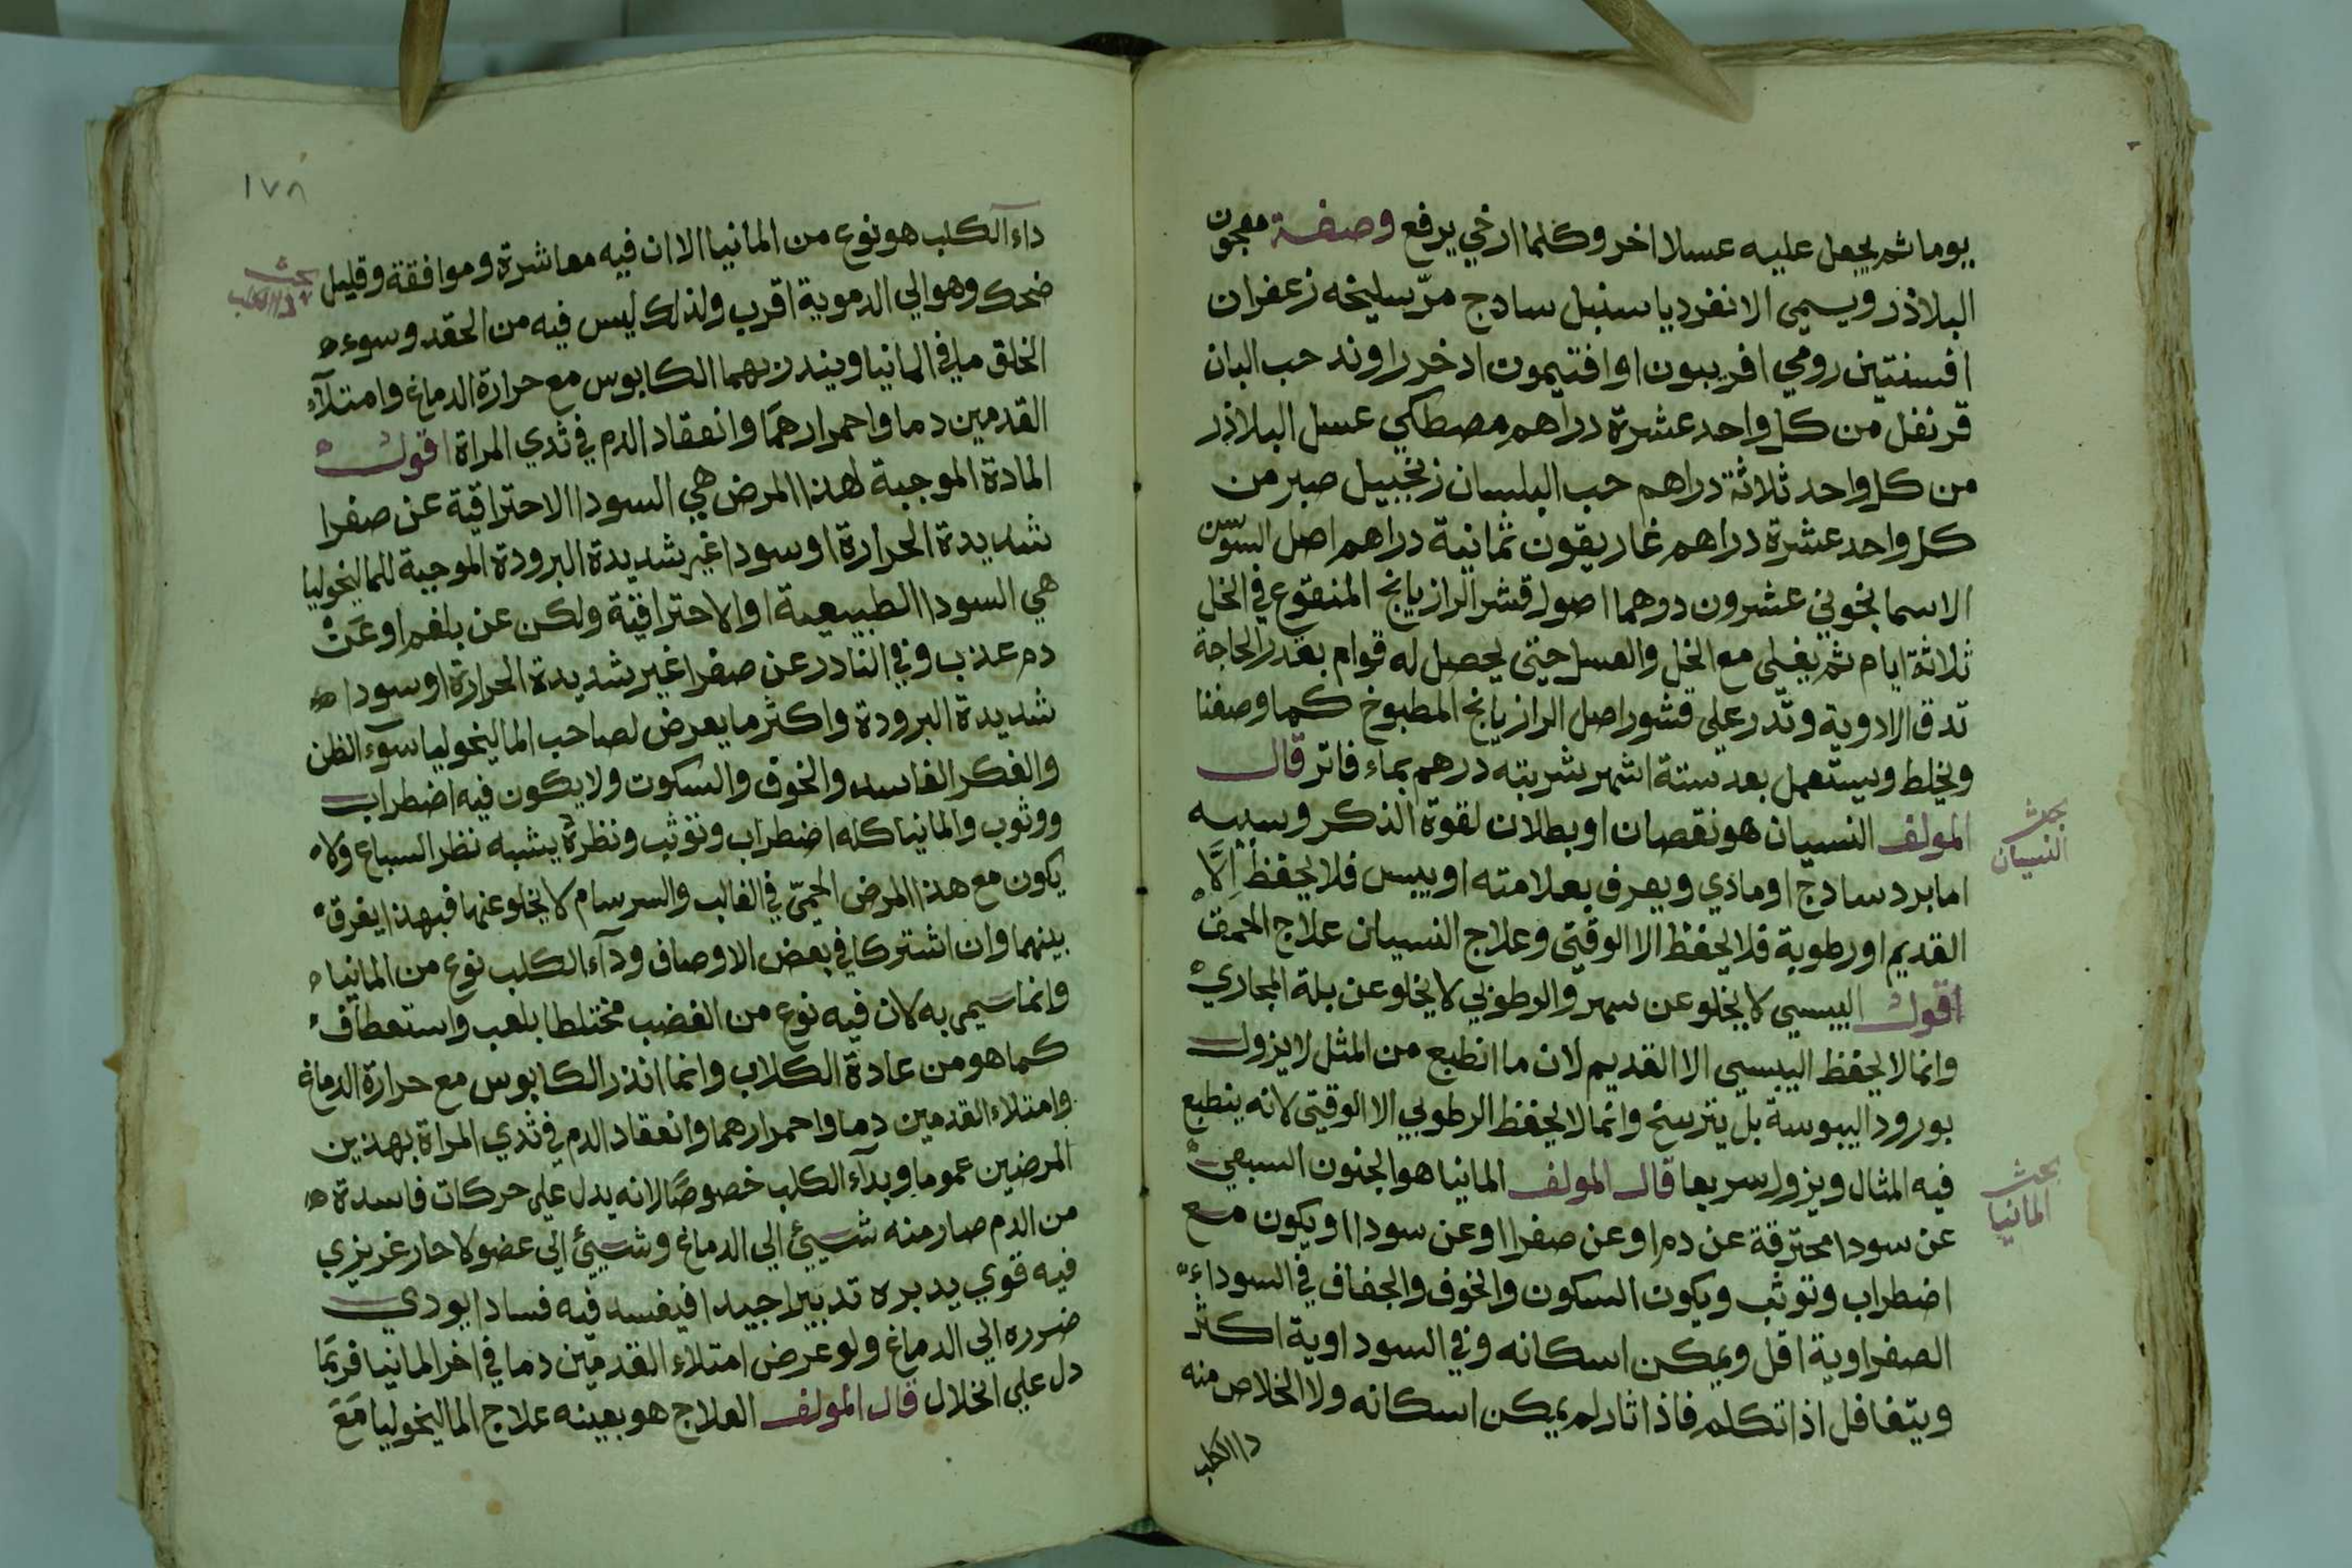 يوما ثم يجعل عليه عسلا اخر وكلما ارخي يرفع وصفة معجون
البلاذر ويسمى الانفرديا سنبل سادج مرّ سليخه زعفران
افسنتين رومي افربيون او افتيمون ادخر راوند حب البان
قرنفل من كل واحد عشرة دراهم مصطكي عسل البلاذر
من كل واحد ثلاثة دراهم حب البلسان زنجبيل صبر من
كل واحد عشرة دراهم غاريقون ثمانية دراهم اصل السوسن
الاسمانجوني عشرون درهما اصول قشر الرازيانج المنقوع في الخل
ثلاثة ايام ثم يغلى مع الخل والعسل حتى يحصل له قوام بقدر الحاجة
تدق الادوية وتذر على قشور اصل الرازيانج المطبوخ كما وصفنا
ويخلط ويستعمل بعد ستة اشهر شربته درهم بماء فاتر قال
المولف النسيان هو نقصان او بطلان لقوة الذكر وسببه
بحث
النسيان
اما برد سادج او مادي ويعرف بعلامته او يبس فلا يحفظ الَّا
القديم او رطوبة فلا يحفظ الا الوقتي وعلاج النسيان علاج الحمق
اقول اليبسي لا يخلو عن سهر والرطوبي لا يخلو عن بلة المجاري
وانما لا يحفظ اليبسي الا القديم لان ما انطبع من المثل لا يزول
بورود اليبوسة بل يترسخ وانما لا يحفظ الرطوبي الا الوقتي لانه ينطبع
فيه المثال ويزول سريعا قال المولف المانيا هو الجنون السبعي
بحث
المانيا
عن سودا محترقة عن دم او عن صفرا او عن سودا او يكون مع
اضطراب وتوثب ويكون السكون والخوف والجفاف في السوداء
الصفراوية اقل ويمكن اسكانه وفي السوداوية اكثر
ويتغافل اذا تكلم فاذا ثار لم يمكن اسكانه ولا الخلاص منه
دا الكلب
١٧٨
داء الكلب هو نوع من المانيا الا ان فيه معاشرة وموافقة وقليل
بحث
دا الكلب
ضحك وهو الي الدموية اقرب ولذلك ليس فيه من الحقد وسوء
الخلق ما في المانيا ويندر بهما الكابوس مع حرارة الدماغ وامتلآء
القدمين دما واحمرارهما وانعقاد الدم في ثدي المراة اقول
المادة الموجبة لهذا المرض هي السودا الاحتراقية عن صفرا
شديدة الحرارة او سودا غير شديدة البرودة الموجبة للماليخوليا
هي السودا الطبيعية او الاحتراقية ولكن عن بلغم او عَنْ
دم عذب وفي النادر عن صفرا غير شديدة الحرارة او سودا
شديدة البرودة واكثر ما يعرض لصاحب الماليخوليا سوء الظن
والفكر الفاسد والخوف والسكوت ولا يكون فيه اضطراب
ووثوب والمانيا كله اضطراب وتوثب ونظرة يشبه نظر السباع ولا
يكون مع هذا المرض الحمّى في الغالب والسرسام لا يخلو عنها فبهذا يفرق
بينهما وان اشتركا في بعض الاوصاف ودآء الكلب نوع من المانيا
وانما سيمي به لان فيه نوع من الغضب مختلطا بلعب واستعطاف
كما هو من عادة الكلاب وانما انذر الكابوس مع حرارة الدماغ
وامتلاء القدمين دما واحمرارهما وانعقاد الدم في ثدي المراة بهذين
المرضين عموما وبدآء الكلب خصوصًا لانه يدل على حركات فاسدة
من الدم صار منه شييئ الي الدماغ وشييئ الى عضو لا حار غريزي
فيه قوي يدبره تدبيرا جيدا فيفسد فيه فسادا يودي
ضرره الي الدماغ ولو عرض امتلاء القدمين دما في اخر المانيا فربَمَا
دل علي انحلال قال المولف العلاج هو بعينه علاج الماليخوليا مَعَ